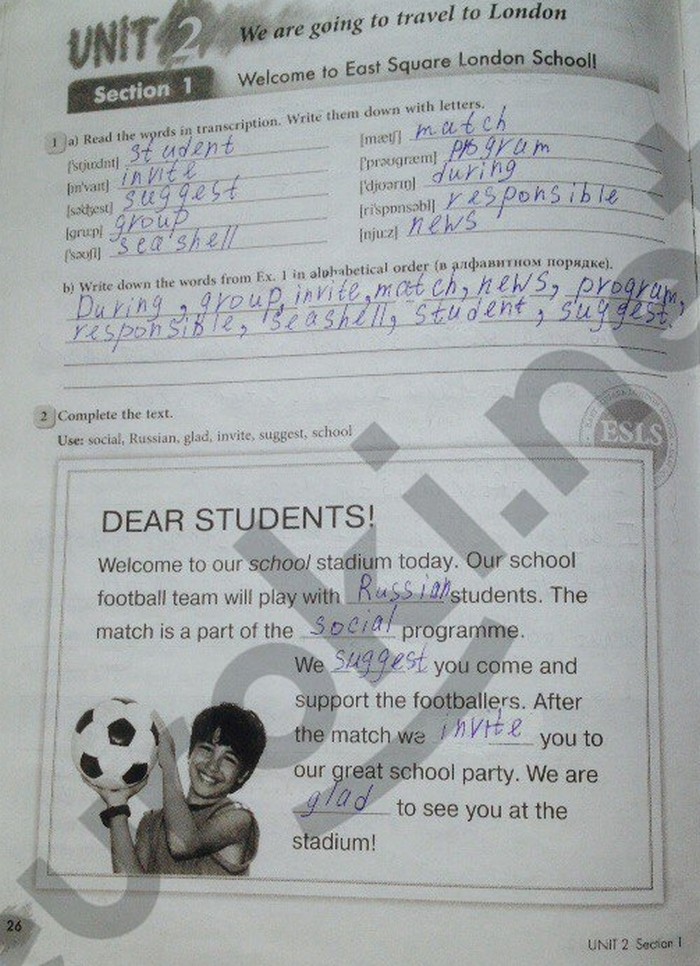 UNIT 2 We are going to travel to London
Section 1 Welcome to East Square London School!
1 a) Read the words in transcription. Write them down with letters.
['stju:dnt] student [mætʃ] match
[ɪn'vaɪt] invite ['prəuɡræm] program
[sə'dʒest] suggest ['djuərɪŋ] during
[ɡru:p] group [rɪ'spɒnsəbl] responsible
['səuʃl] sea shell [nju:z] news
b) Write down the words from Ex. 1 in alphabetical order (в алфавитном порядке).
During, group, invite, match, news, program,
responsible, seashell, student, suggest.
2 Complete the text.
Use: social, Russian, glad, invite, suggest, school
ESLS
DEAR STUDENTS!
Welcome to our school stadium today. Our school
football team will play with Russian students. The
match is a part of the social programme.
We suggest you come and
support the footballers. After
the match we invite you to
our great school party. We are
glad to see you at the
stadium!
26
UNIT 2 Section 1